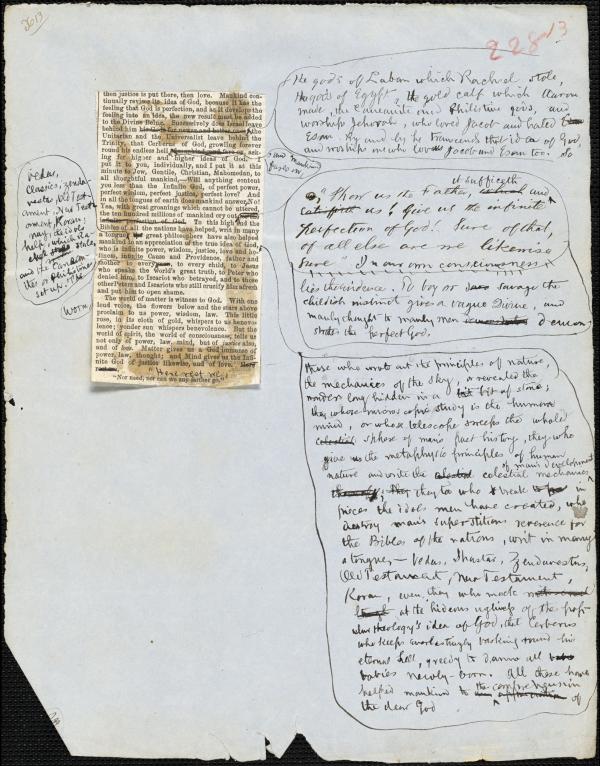 2613
228
13
then justice is put there, then love. Mankind con-
tinually revises its idea of God, because it has the
feeling that God is perfection, and as it develops the
feeling into an idea, the new result must be added
to the Divine Being. Successively does Israel leave
behind him
the Unitarian and the Universalist leave behind the
Trinity, that Cerberus of God, growling forever
round its endless hell
asking for higher and higher ideas of God.
I put it to you, individually, and I put it at this
minute to Jew, Gentile, Christian, Mahomedan, to
all thoughtful mankind,—Will anything content
you less than the Infinite God, of perfect power,
perfect wisdom, perfect justice, perfect love? And
in all the tongues of earth does mankind answer, No!
Yea, with great groanings which cannot be uttered,
the ten hundred millions of mankind cry out
To this high end the
Bibles of all the nations have helped, writ in many
a tongue; the great philosophers have also helped
mankind to an appreciation of the true idea of God,
who is infinite power, wisdom, justice, love and ho-
liness, infinite Cause and Providence, father and
mother to every to every child, to Jesus
who speaks the World's great truth, to Peter who
denied him, to Iscariot who betrayed, and to those
other Peters and Iscariots who still crucify him afresh
and put him to open shame.
The world of matter is witness to God. With one
loud voice, the flowers below and the stars above
proclaim to us power, wisdom, law. This little
rose, in its cloth of gold, whispers to us benevo-
lence; yonder sun whispers benevolence. But the
world of spirit, the world of consciousness, tells us
not only of power, law, mind, but of justice also,
and of love. Matter gives us a God immense of
power, law, thought; and Mind gives us the Infi-
nite God of justice likewise, and of love.
"Here rest we,
"Nor need, nor can we any farther go."
and mankind
Vedas,
Classics, Zenda-
vesta, Old Test-
ament, New Testa-
ment, Koran,
many idols
help, which
and the
set up.
worn,
The gods of Laban which Rachel stole,
the gods of Egypt, the gold calf which Aaron
made, the Canaanite and Philistine gods, and
worship Jehovah, who loved Jacob and hated
Esau. By and by he transcends that idea of God,
and worships one who loves Jacob and Esau too. So
it sufficeth
"Show us the Father, and
us! Give us the infinite
Perfection of God! Sure of that,
of all else are we likewise
sure" In my own consciousness
lies the evidence. To boy or savage the
childish instinct gives a vague Divine, and
manly thought to manly men demon-
strates the perfect God.
Those who wrought out the principles of nature,
the mechanics of the sky, or revealed the
wonders long hidden in a bit of stone;
they whose study is the human
mind, or whose telescope sweeps the whole
sphere of man's past history, they who
give us the metaphysic principles of human
nature and write the celestial mechanics
of man's development
they too who break in
pieces the idols men have created, who
destroy man's superstitious reverence for
the Bibles of the nations, writ in many
a tongue,— Vedas, Shastas, Zendavestas,
Old Testament, New Testament,
Koran, even they who mock
at the hideous ugliness of the pop-
ular theology's idea of God, that Cerberus
who keeps everlastingly barking round his
eternal hell, greedy to damn all
babies newly-born. All these have
helped mankind to comprehension of
the dear God